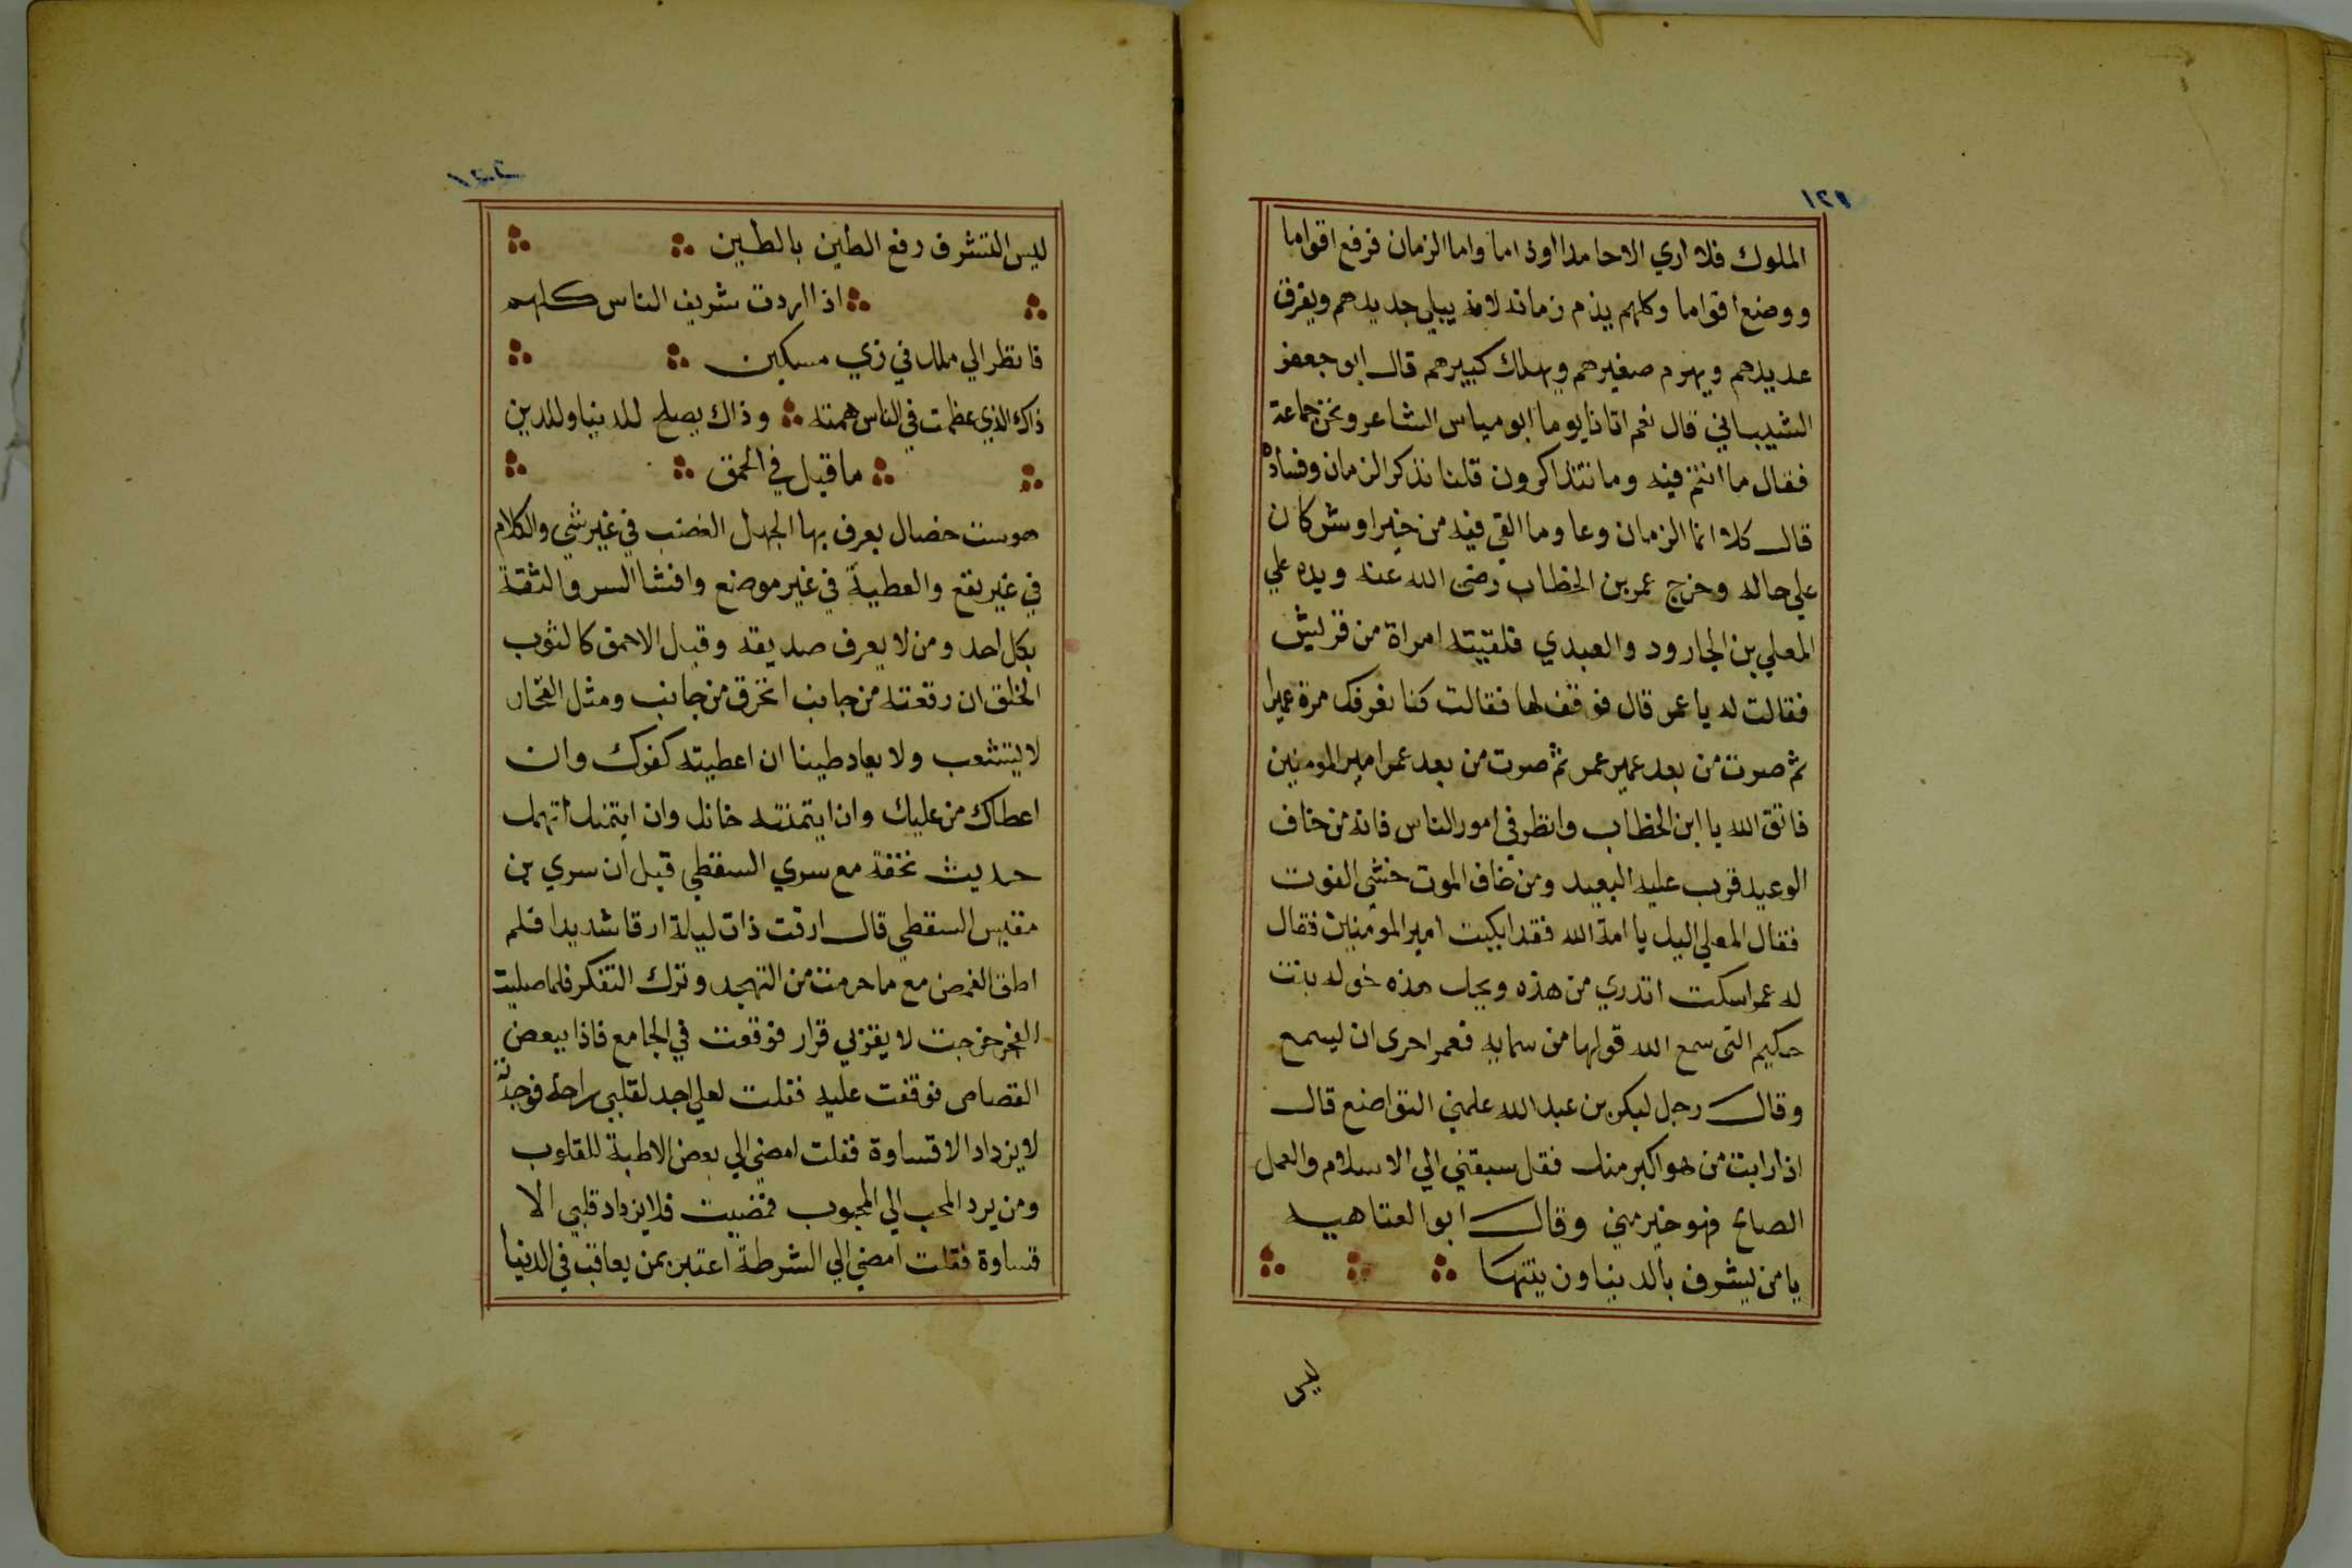 ١٢١
الملوك فلا اري الا حامدا او ذاما واما الزمان فرفع اقواما
ووضع اقواما وكلهم يذم زمانه لانه يبلي جديدهم ويفرق
عديدهم ويهرم صغيرهم ويهلك كبيرهم قال ابو جعفر
الشيباني قال نعم اتانا يوما ابو مياس الشاعر ونحن جماعة
فقال ما انتم فيه وما تتذاكرون قلنا نذكر الزمان وفساده
قال كلا انما الزمان وعا وما القي فيه من خير او شر كان
علي حاله وخرج عمر بن الخطاب رضى الله عنه ويده علي
المعلي بن الجارود والعبدي فلقيته امراة من قريش
فقالت له يا عمر قال فوقف لها فقالت كنا نعرفك مرة عميرا
ثم صرت من بعد عمير عمر ثم صرت من بعد عمر امير المومنين
فاتق الله يا ابن الخطاب وانظر في امور الناس فانه من خاف
الوعيد قرب عليه البعيد ومن خاف الموت خشى الفوت
فقال المعلي اليك يا امة الله فقد ابكيت امير المومنين فقال
له عمر اسكت اتدري من هذه ويحك هذه خوله بنت
حكيم التى سمع الله قولها من سمايه فعمر احرى ان يسمع
وقال رجل لبكر بن عبد الله علمني التواضع قال
اذا رايت من هو اكبر منك فقل سبقني الي الاسلام والعمل
الصالح فهو خير مني وقال ابو العتاهيه
يا من يشرف بالدنيا وزينتها
ليس
١٢٢
ليس التشرف رفع الطين بالطين
اذا اردت شريف الناس كلهم
فانظر الي ملك في زي مسكين
ذاك الذي عظمت في الناس همته وذاك يصلح للدنيا وللدين
ما قيل في الحمق
هو ست خصال يعرف بها الجهل الغضب في غير شي والكلام
في غير نفع والعطية في غير موضع وافشا السر والثقة
بكل احد ومن لا يعرف صديقه وقيل الاحمق كالثوب
الخلق ان رقعته من جانب انخرق من جانب ومثل الفخار
لا يتشعب ولا يعاد طينا ان اعطيته كفرك وان
اعطاك من عليك وان ايتمنته خانك وان ايتمنك اتهمك
حديث تحفة مع سري السقطي قيل ان سري بن
مغيس السقطي قال ارقت ذات ليلة ارقا شديدا فلم
اطق الغمض مع ما حرمت من التهجد وترك التفكر فلما صليت
الفجر خرجت لا يقر لي قرار فوقعت في الجامع فاذا ببعض
القصاص فوقفت عليه فقلت لعلي اجد لقلبي راحة فوجدته
لا يزداد الا قساوة فقلت امضي الي بعض الاطبة للقلوب
ومن يرد المحب الي المحبوب فمضيت فلا يزداد قلبي الا
قساوة فقلت امضي الي الشرطة اعتبر بمن يعاقب في الدنيا